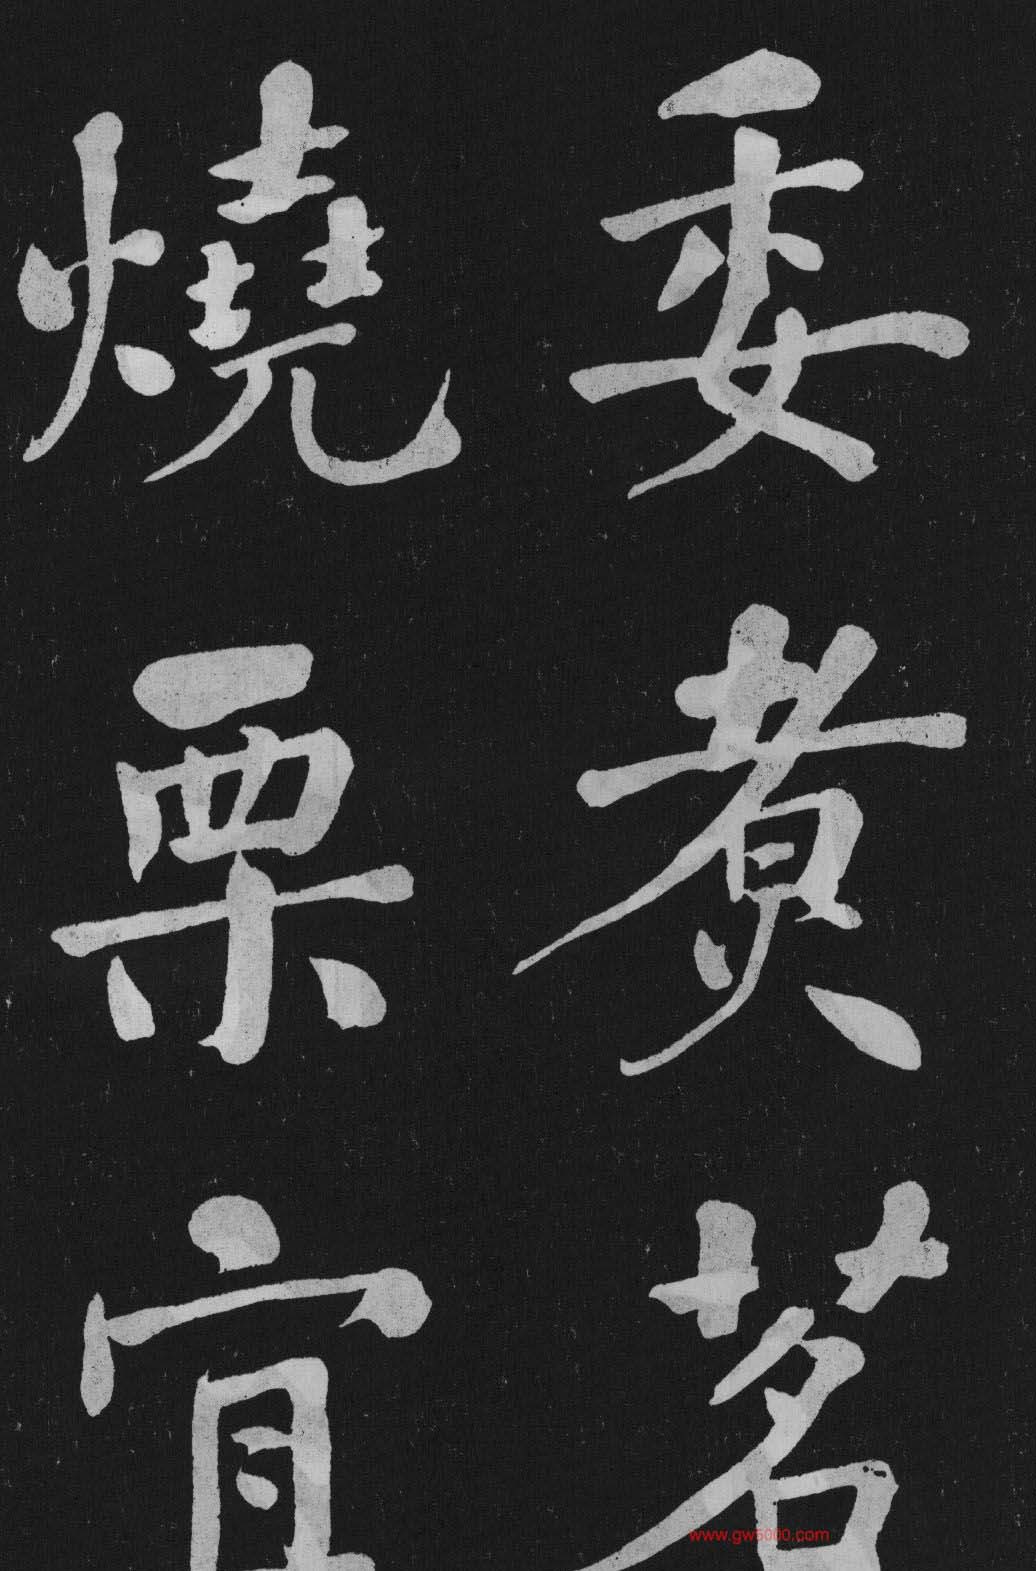 委煑茗
燒栗宜
www.gw5000.com